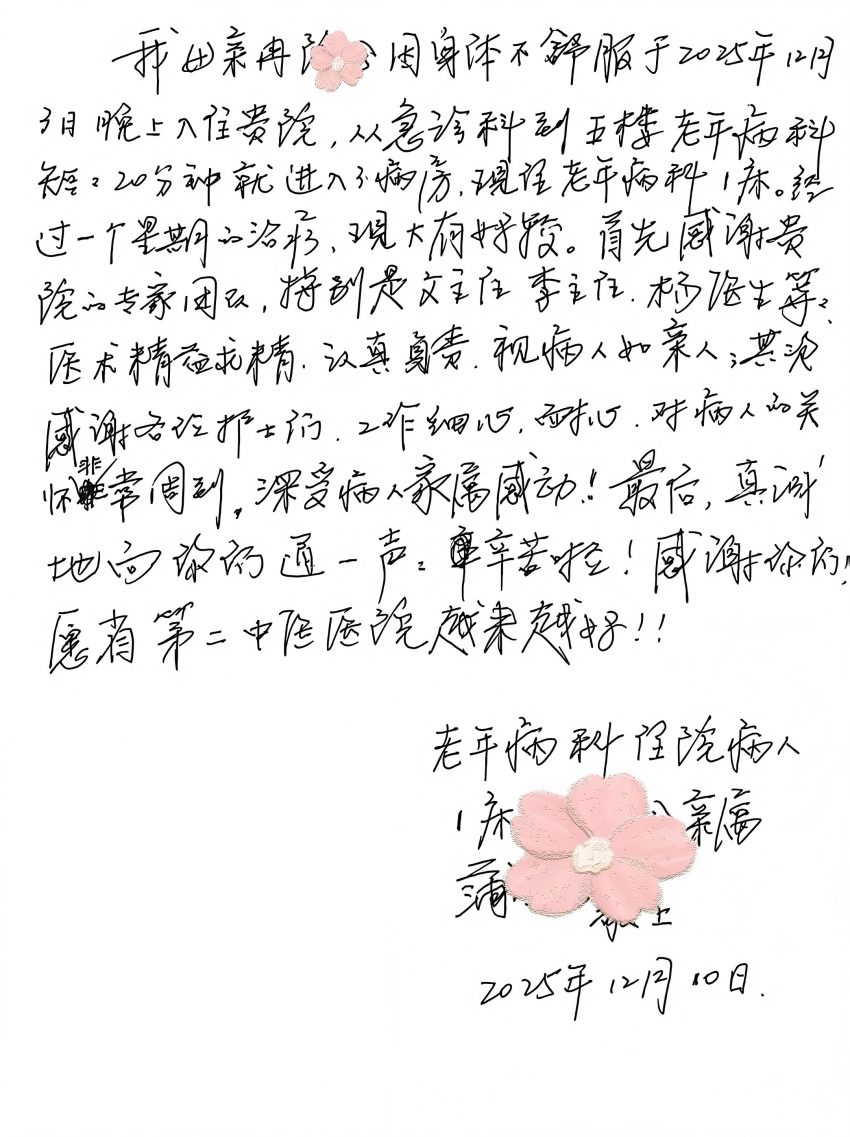 我母亲冉 因身体不舒服于2025年12月
3日晚上入住贵院,从急诊科到五楼老年病科
短短20分种就进入了病房,现住老年病科1床。经
过一个星期的治疗,现大有好转。首先感谢贵
院的专家团队,特别是文主任 李主任.杨医生等等
医术精益求精.认真负责.视病人如亲人;其次
感谢各位护士们.工作细心,耐心.对病人的关
怀非常周到,深受病人家属感动!最后,真诚
地向你们道一声:辛苦啦!感谢你们!
愿省第二中医医院越来越好!!
老年病科住院病人
1床 亲属
蒲 敬上
2025年12月10日.